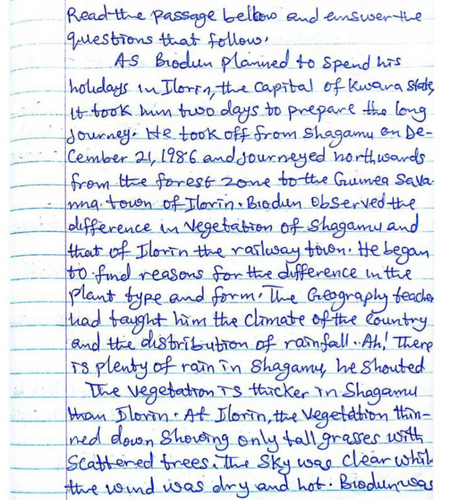 Read the passage bellow and answer the
questions that follow.
As Biodun planned to spend his
holidays in Ilorin, the capital of Kwara state,
it took him two days to prepare the long
journey. He took off from Shagamu on De-
cember 21, 1986 and journeyed northwards
from the forest zone to the Guinea Sava-
nna town of Ilorin. Biodun observed the
difference in vegetation of Shagamu and
that of Ilorin the railway town. He began
to find reasons for the difference in the
plant type and form. The Geography teacher
had taught him the climate of the country
and the distribution of rainfall. Ah! There
is plenty of rain in Shagamu, he shouted
The vegetation is thicker in Shagamu
than Ilorin. At Ilorin, the vegetation thin-
ned down showing only tall grasses with
scattered trees. The sky was clear whil
the wind was dry and hot. Biodun was